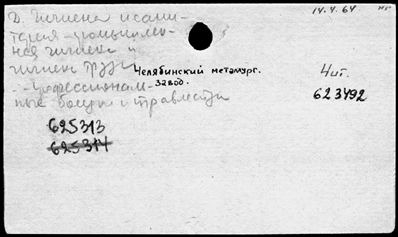 Д. Гигиена и сани-
14.4.64
тария - промышлен-
ная гигиена и
гигиена труда
Челябинский металург.
завод.
Чит.
- профессионал-
623492
ные болезни и травматизм
625313
625314